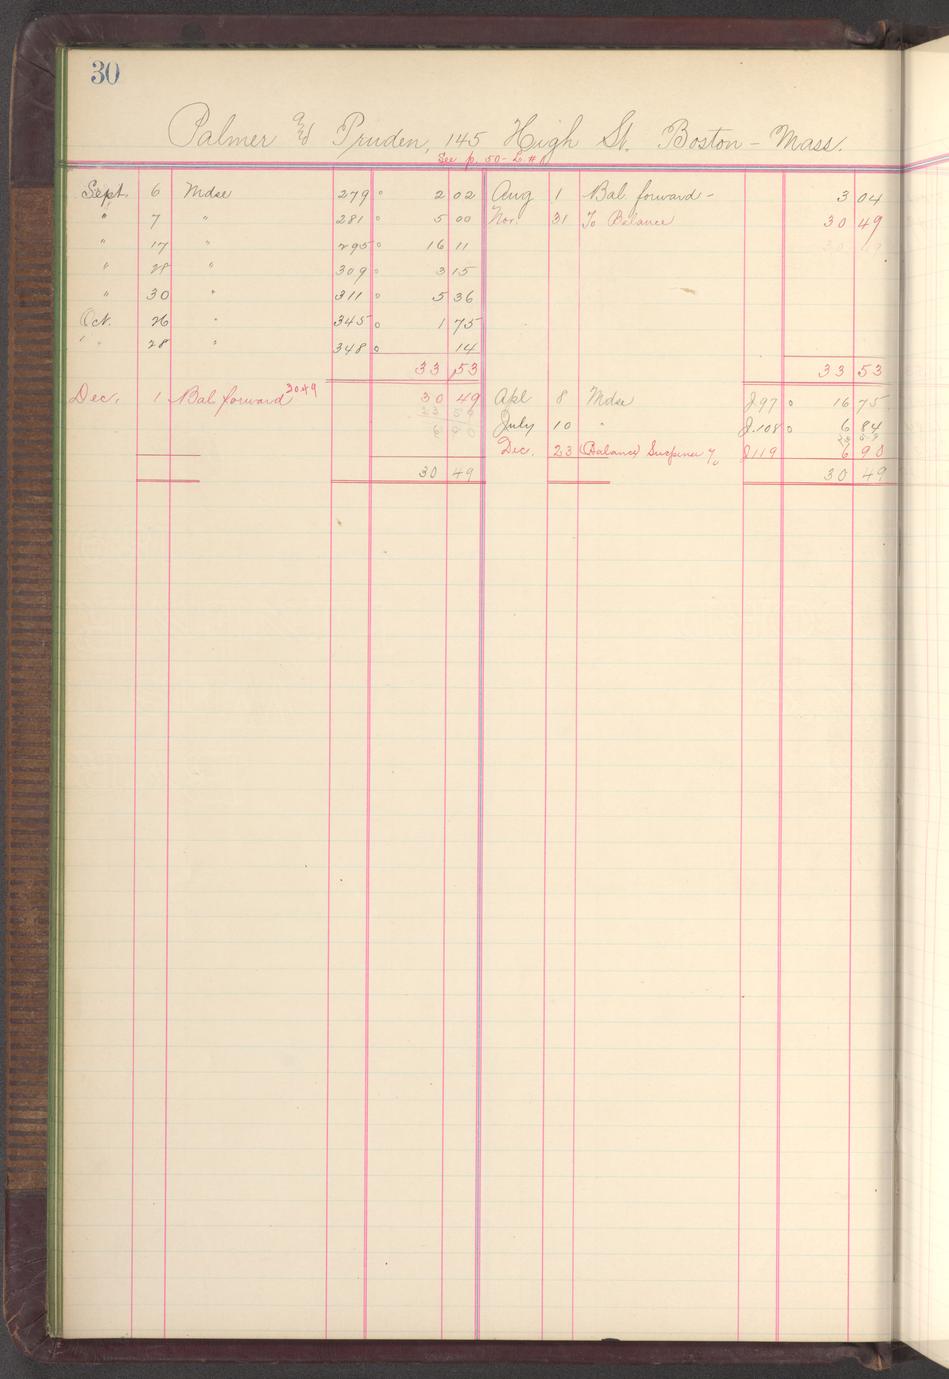 30
Palmer and Pruden, 145 High St. Boston - Mass.
See p. 50 - L. #1
Sept. 6 Mdse 279 o 2 02 Aug 1 Bal. forward - 3 04
" 7 " 281 o 5 00 Nov. 31 To Balance 30 49
" 17 " 295 o 16 11 30 49
" 28 " 309 o 3 15
" 30 " 311 o 5 36
Oct. 26 " 345 o 1 75
" 28 " 348 o 14
33 53 33 53
Dec. 1 Bal forward 30.49 30 49 Apl 8 Mdse J 97 o 16 75
23 59 July 10 " J. 108 o 6 84
6 90 23 59
Dec. 23 (Balance) Suspense J 119 6 90
30 49 30 49